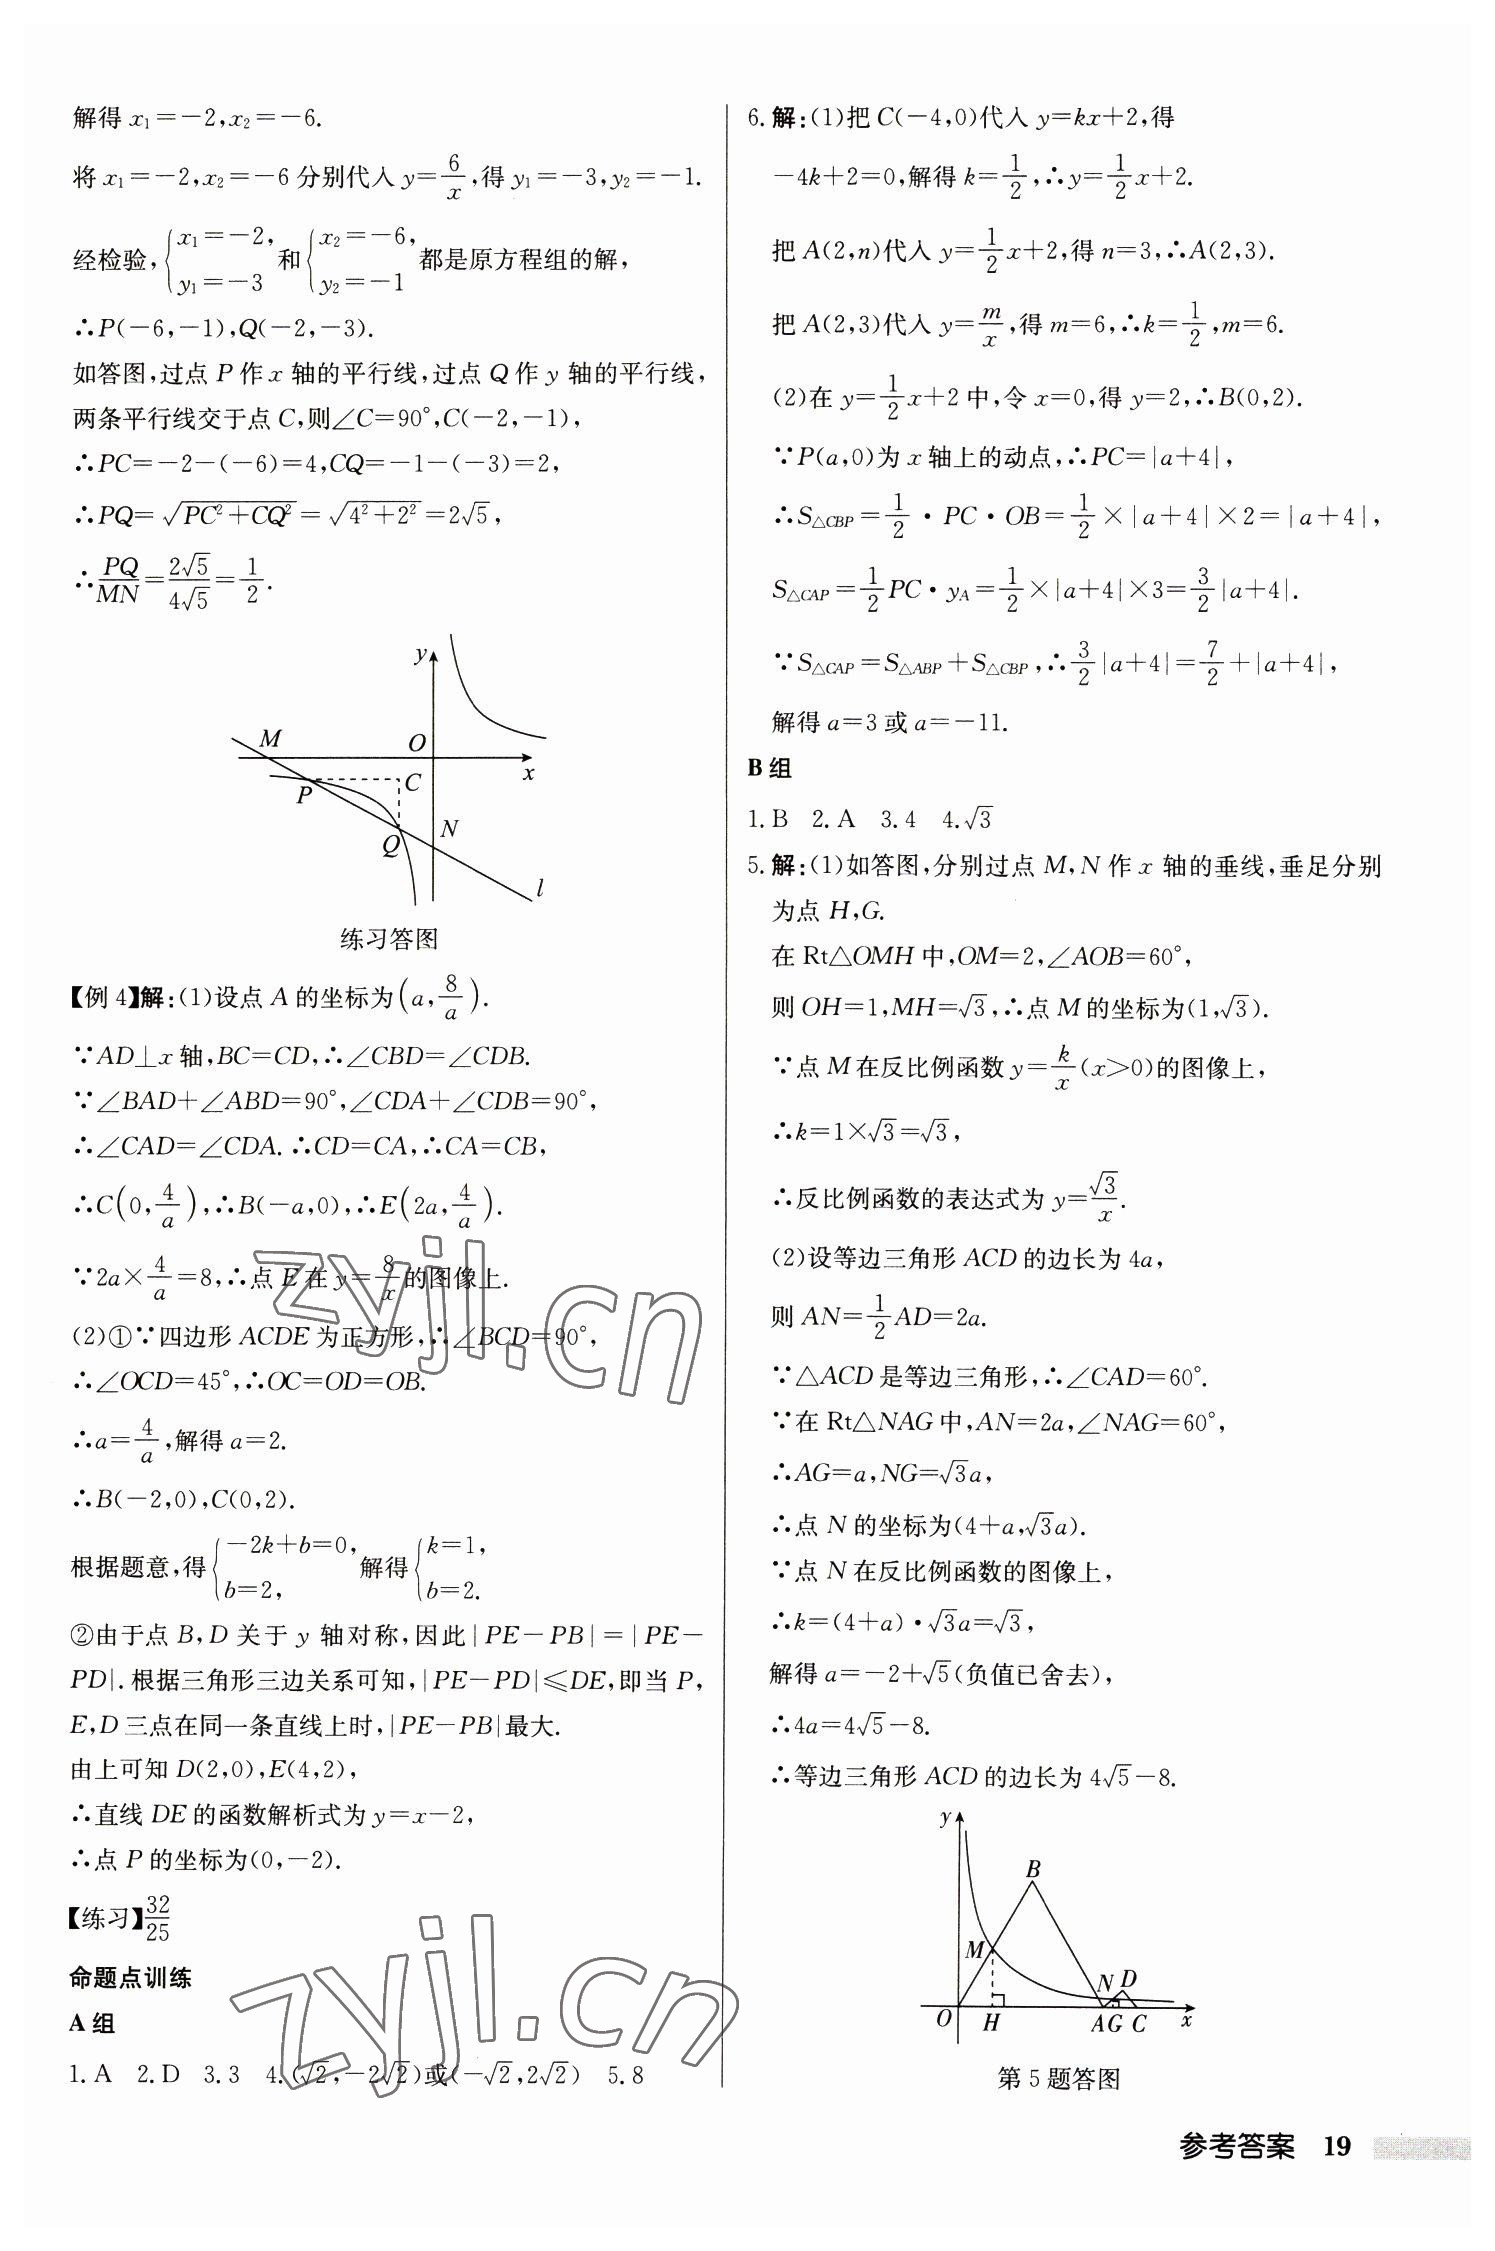 解得 x₁=-2,x₂=-6.
将 x₁=-2,x₂=-6 分别代入 y=6/x,得 y₁=-3,y₂=-1.
经检验,{x₁=-2, y₁=-3 和 {x₂=-6, y₂=-1 都是原方程组的解,
∴P(-6,-1),Q(-2,-3).
如答图,过点 P 作 x 轴的平行线,过点 Q 作 y 轴的平行线,
两条平行线交于点 C,则∠C=90°,C(-2,-1),
∴PC=-2-(-6)=4,CQ=-1-(-3)=2,
∴PQ=√(PC²+CQ²)=√(4²+2²)=2√5,
∴PQ/MN=2√5/4√5=1/2.
y
M
O
x
P
C
Q
N
l
练习答图
【例 4】解:(1)设点 A 的坐标为(a,8/a).
∵AD⊥x 轴,BC=CD,∴∠CBD=∠CDB.
∵∠BAD+∠ABD=90°,∠CDA+∠CDB=90°,
∴∠CAD=∠CDA.∴CD=CA,∴CA=CB,
∴C(0,4/a),∴B(-a,0),∴E(2a,4/a).
∵2a×4/a=8,∴点 E 在 y=8/x的图像上.
(2)①∵四边形 ACDE 为正方形,∴∠BCD=90°,
∴∠OCD=45°,∴OC=OD=OB.
∴a=4/a,解得 a=2.
∴B(-2,0),C(0,2).
根据题意,得{-2k+b=0, b=2, 解得{k=1, b=2.
②由于点 B,D 关于 y 轴对称,因此|PE-PB|=|PE-
PD|.根据三角形三边关系可知,|PE-PD|≤DE,即当 P,
E,D 三点在同一条直线上时,|PE-PB|最大.
由上可知 D(2,0),E(4,2),
∴直线 DE 的函数解析式为 y=x-2,
∴点 P 的坐标为(0,-2).
【练习】32/25
命题点训练
A 组
1.A 2.D 3.3 4.(√2,-2√2)或(-√2,2√2) 5.8
6.解:(1)把 C(-4,0)代入 y=kx+2,得
-4k+2=0,解得 k=1/2,∴y=1/2x+2.
把 A(2,n)代入 y=1/2x+2,得 n=3,∴A(2,3).
把 A(2,3)代入 y=m/x,得 m=6,∴k=1/2,m=6.
(2)在 y=1/2x+2 中,令 x=0,得 y=2,∴B(0,2).
∵P(a,0)为 x 轴上的动点,∴PC=|a+4|,
∴S△CBP=1/2·PC·OB=1/2×|a+4|×2=|a+4|,
S△CAP=1/2PC·yA=1/2×|a+4|×3=3/2|a+4|.
∵S△CAP=S△ABP+S△CBP,∴3/2|a+4|=7/2+|a+4|,
解得 a=3 或 a=-11.
B 组
1.B 2.A 3.4 4.√3
5.解:(1)如答图,分别过点 M,N 作 x 轴的垂线,垂足分别
为点 H,G.
在 Rt△OMH 中,OM=2,∠AOB=60°,
则 OH=1,MH=√3,∴点 M 的坐标为(1,√3).
∵点 M 在反比例函数 y=k/x(x>0)的图像上,
∴k=1×√3=√3,
∴反比例函数的表达式为 y=√3/x.
(2)设等边三角形 ACD 的边长为 4a,
则 AN=1/2AD=2a.
∵△ACD 是等边三角形,∴∠CAD=60°.
∵在 Rt△NAG 中,AN=2a,∠NAG=60°,
∴AG=a,NG=√3a,
∴点 N 的坐标为(4+a,√3a).
∵点 N 在反比例函数的图像上,
∴k=(4+a)·√3a=√3,
解得 a=-2+√5(负值已舍去),
∴4a=4√5-8.
∴等边三角形 ACD 的边长为 4√5-8.
y
B
M
N D
O H A G C x
第 5 题答图
参考答案 19
zyjl.cn
zyjl.cn